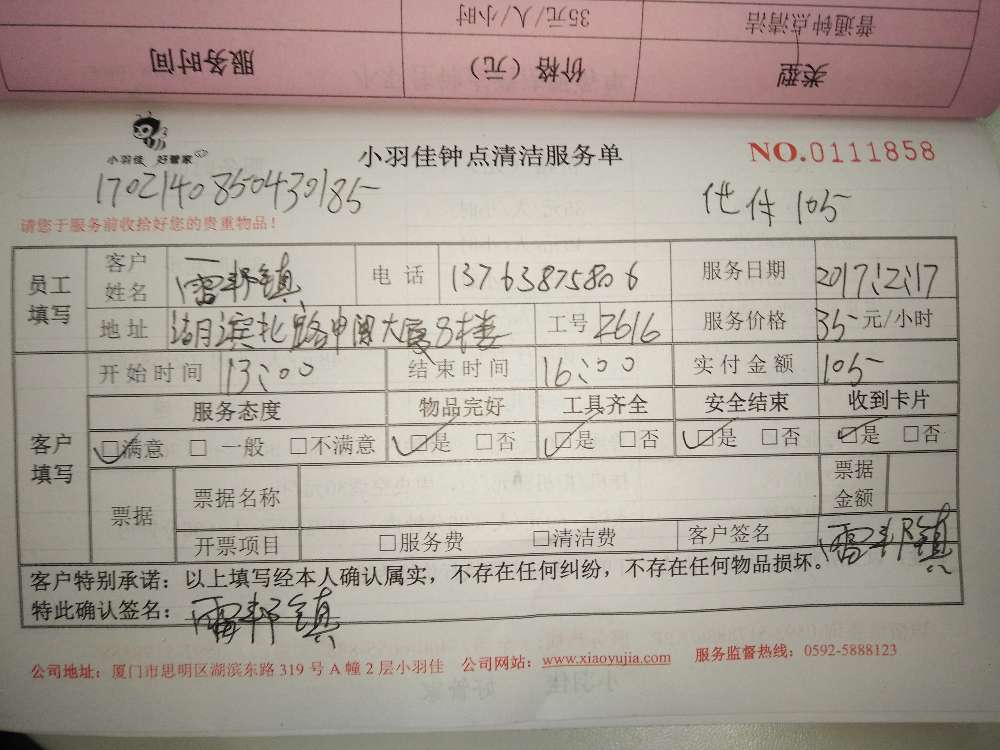 普通钟点清洁 35元/人/小时
类型 价格（元） 服务时间
小羽佳 好管家
小羽佳钟点清洁服务单 NO.0111858
1702140850430185
请您于服务前收拾好您的贵重物品！
105
员工填写 客户姓名 雷邦镇 电话 13763875806 服务日期 2017.2.17
地址 湖滨北路中闽大厦8楼 工号 2616 服务价格 35元/小时
客户填写 开始时间 13:00 结束时间 16:00 实付金额 105
服务态度 物品完好 工具齐全 安全结束 收到卡片
☑满意 □一般 □不满意 ☑是 □否 ☑是 □否 ☑是 □否 ☑是 □否
票据 票据名称 票据金额
开票项目 □服务费 □清洁费 客户签名 雷邦镇
客户特别承诺：以上填写经本人确认属实，不存在任何纠纷，不存在任何物品损坏。
特此确认签名：雷邦镇
公司地址：厦门市思明区湖滨东路 319 号 A 幢 2 层小羽佳 公司网站：www.xiaoyujia.com 服务监督热线：0592-5888123